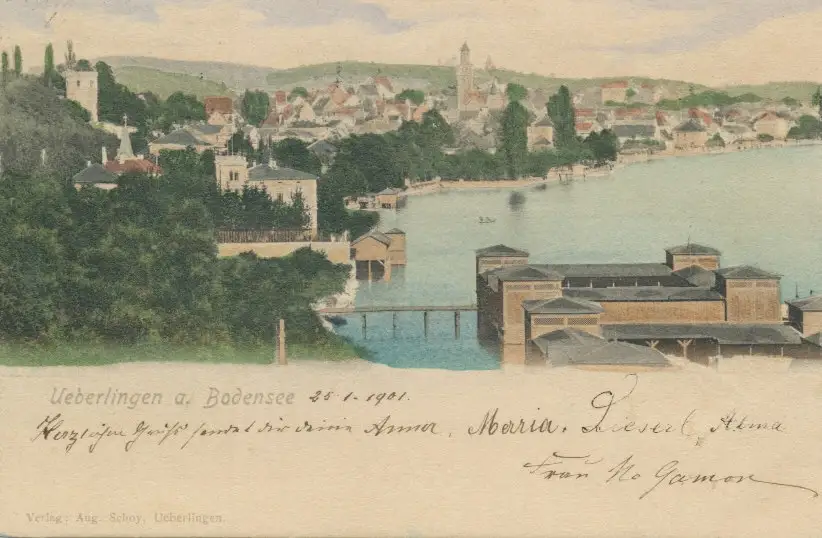 Ueberlingen a. Bodensee 25-1-1901.
Herzlichen Gruß sendet dir deine Anna, Maria, Lieserl, Alma
Frau
Verlag: Aug. Schoy, Ueberlingen.